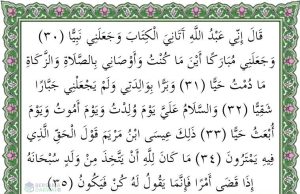 قَالَ إِنِّي عَبْدُ اللَّهِ آتَانِيَ الْكِتَابَ وَجَعَلَنِي نَبِيًّا (٣٠)
وَجَعَلَنِي مُبَارَكًا أَيْنَ مَا كُنْتُ وَأَوْصَانِي بِالصَّلَاةِ وَالزَّكَاةِ
مَا دُمْتُ حَيًّا (٣١) وَبَرًّا بِوَالِدَتِي وَلَمْ يَجْعَلْنِي جَبَّارًا
شَقِيًّا (٣٢) وَالسَّلَامُ عَلَيَّ يَوْمَ وُلِدْتُ وَيَوْمَ أَمُوتُ وَيَوْمَ
أُبْعَثُ حَيًّا (٣٣) ذَلِكَ عِيسَى ابْنُ مَرْيَمَ قَوْلَ الْحَقِّ الَّذِي
فِيهِ يَمْتَرُونَ (٣٤) مَا كَانَ لِلَّهِ أَنْ يَتَّخِذَ مِنْ وَلَدٍ سُبْحَانَهُ
إِذَا قَضَى أَمْرًا فَإِنَّمَا يَقُولُ لَهُ كُنْ فَيَكُونُ (٣٥)